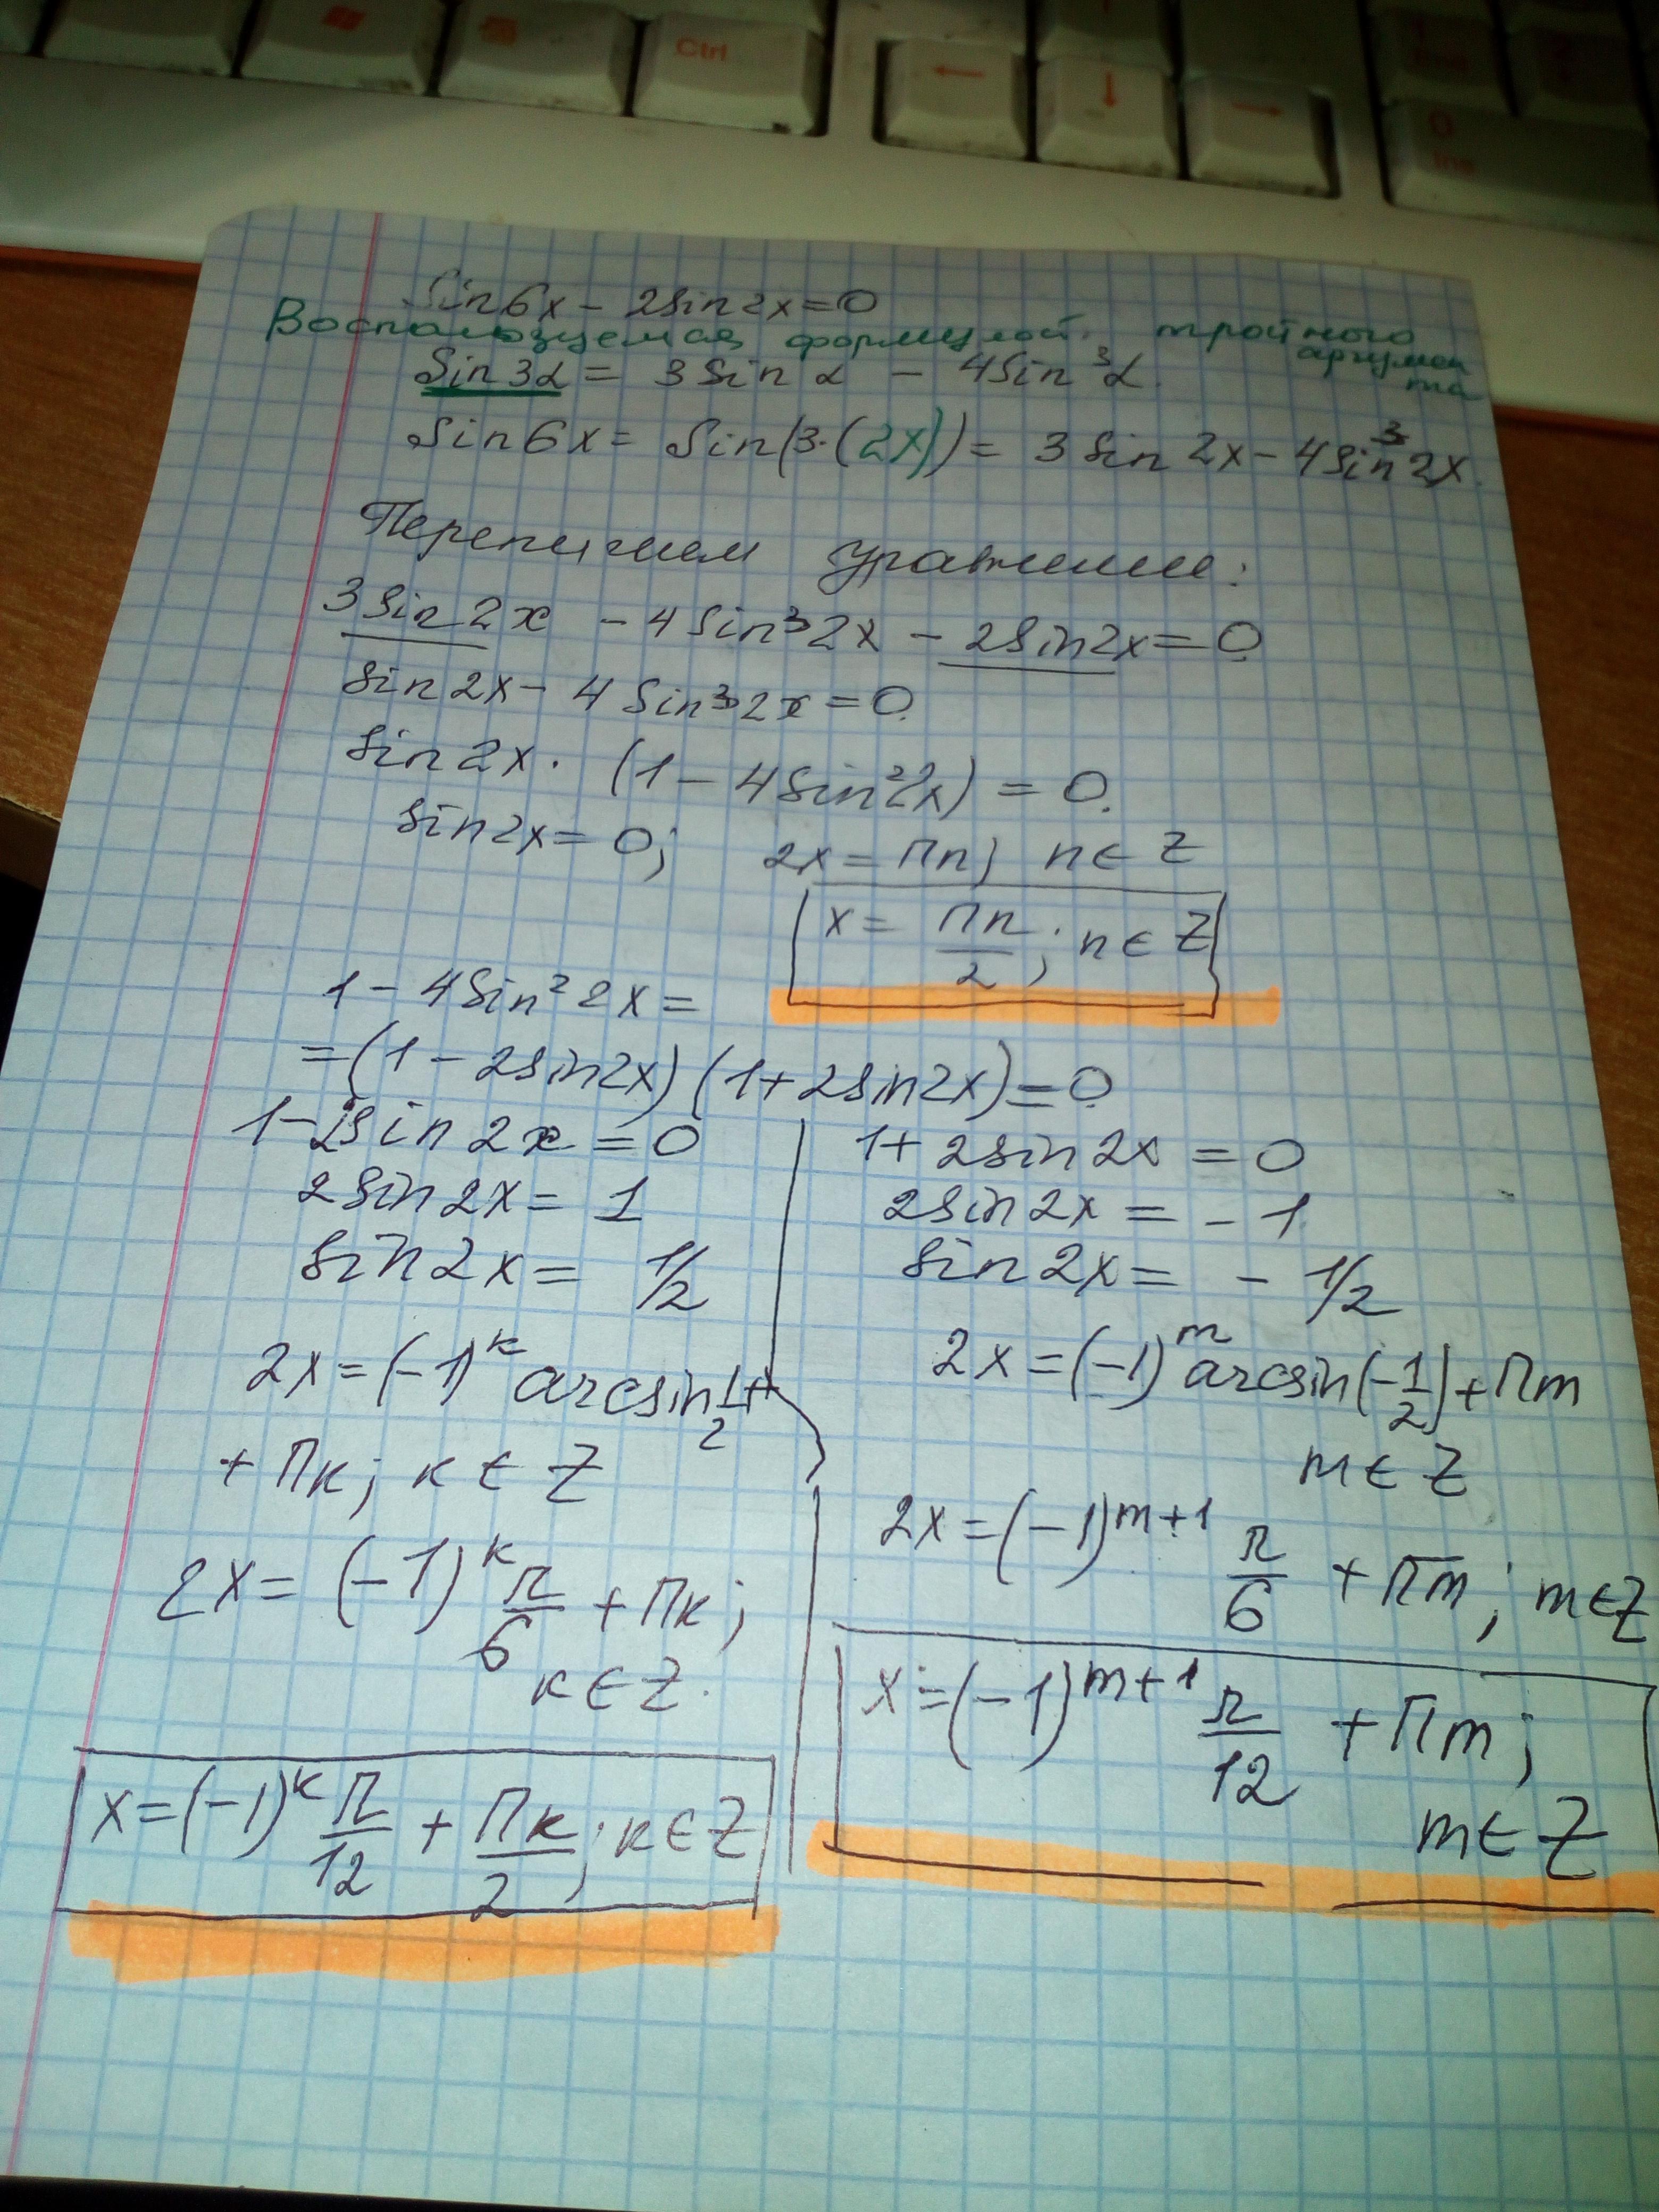 Ctrl
←
↓
→
0
Ins
sin6x - 2sin2x=0
Воспользуемся формулой тройного аргумента
Sin3α = 3Sinα - 4Sin³α.
Sin6x = Sin(3·(2x)) = 3sin2x - 4sin³2x.
Перепишем уравнение:
3sin2x - 4sin³2x - 2sin2x = 0.
sin2x - 4sin³2x = 0.
sin2x · (1 - 4sin²2x) = 0.
sin2x = 0; 2x = Πn; n ∈ Z
x = Πn/2; n ∈ Z
1 - 4sin²2x =
= (1 - 2sin2x)(1 + 2sin2x) = 0.
1 - 2sin2x = 0
2sin2x = 1
sin2x = 1/2
2x = (-1)^k arcsin 1/2 +
+ Πk; k ∈ Z
2x = (-1)^k π/6 + Πk;
k ∈ Z.
x = (-1)^k π/12 + Πk/2; k ∈ Z
1 + 2sin2x = 0
2sin2x = -1
sin2x = - 1/2
2x = (-1)^m arcsin(-1/2) + Πm
m ∈ Z
2x = (-1)^m+1 π/6 + Πm; m ∈ Z
x = (-1)^m+1 π/12 + Πm;
m ∈ Z